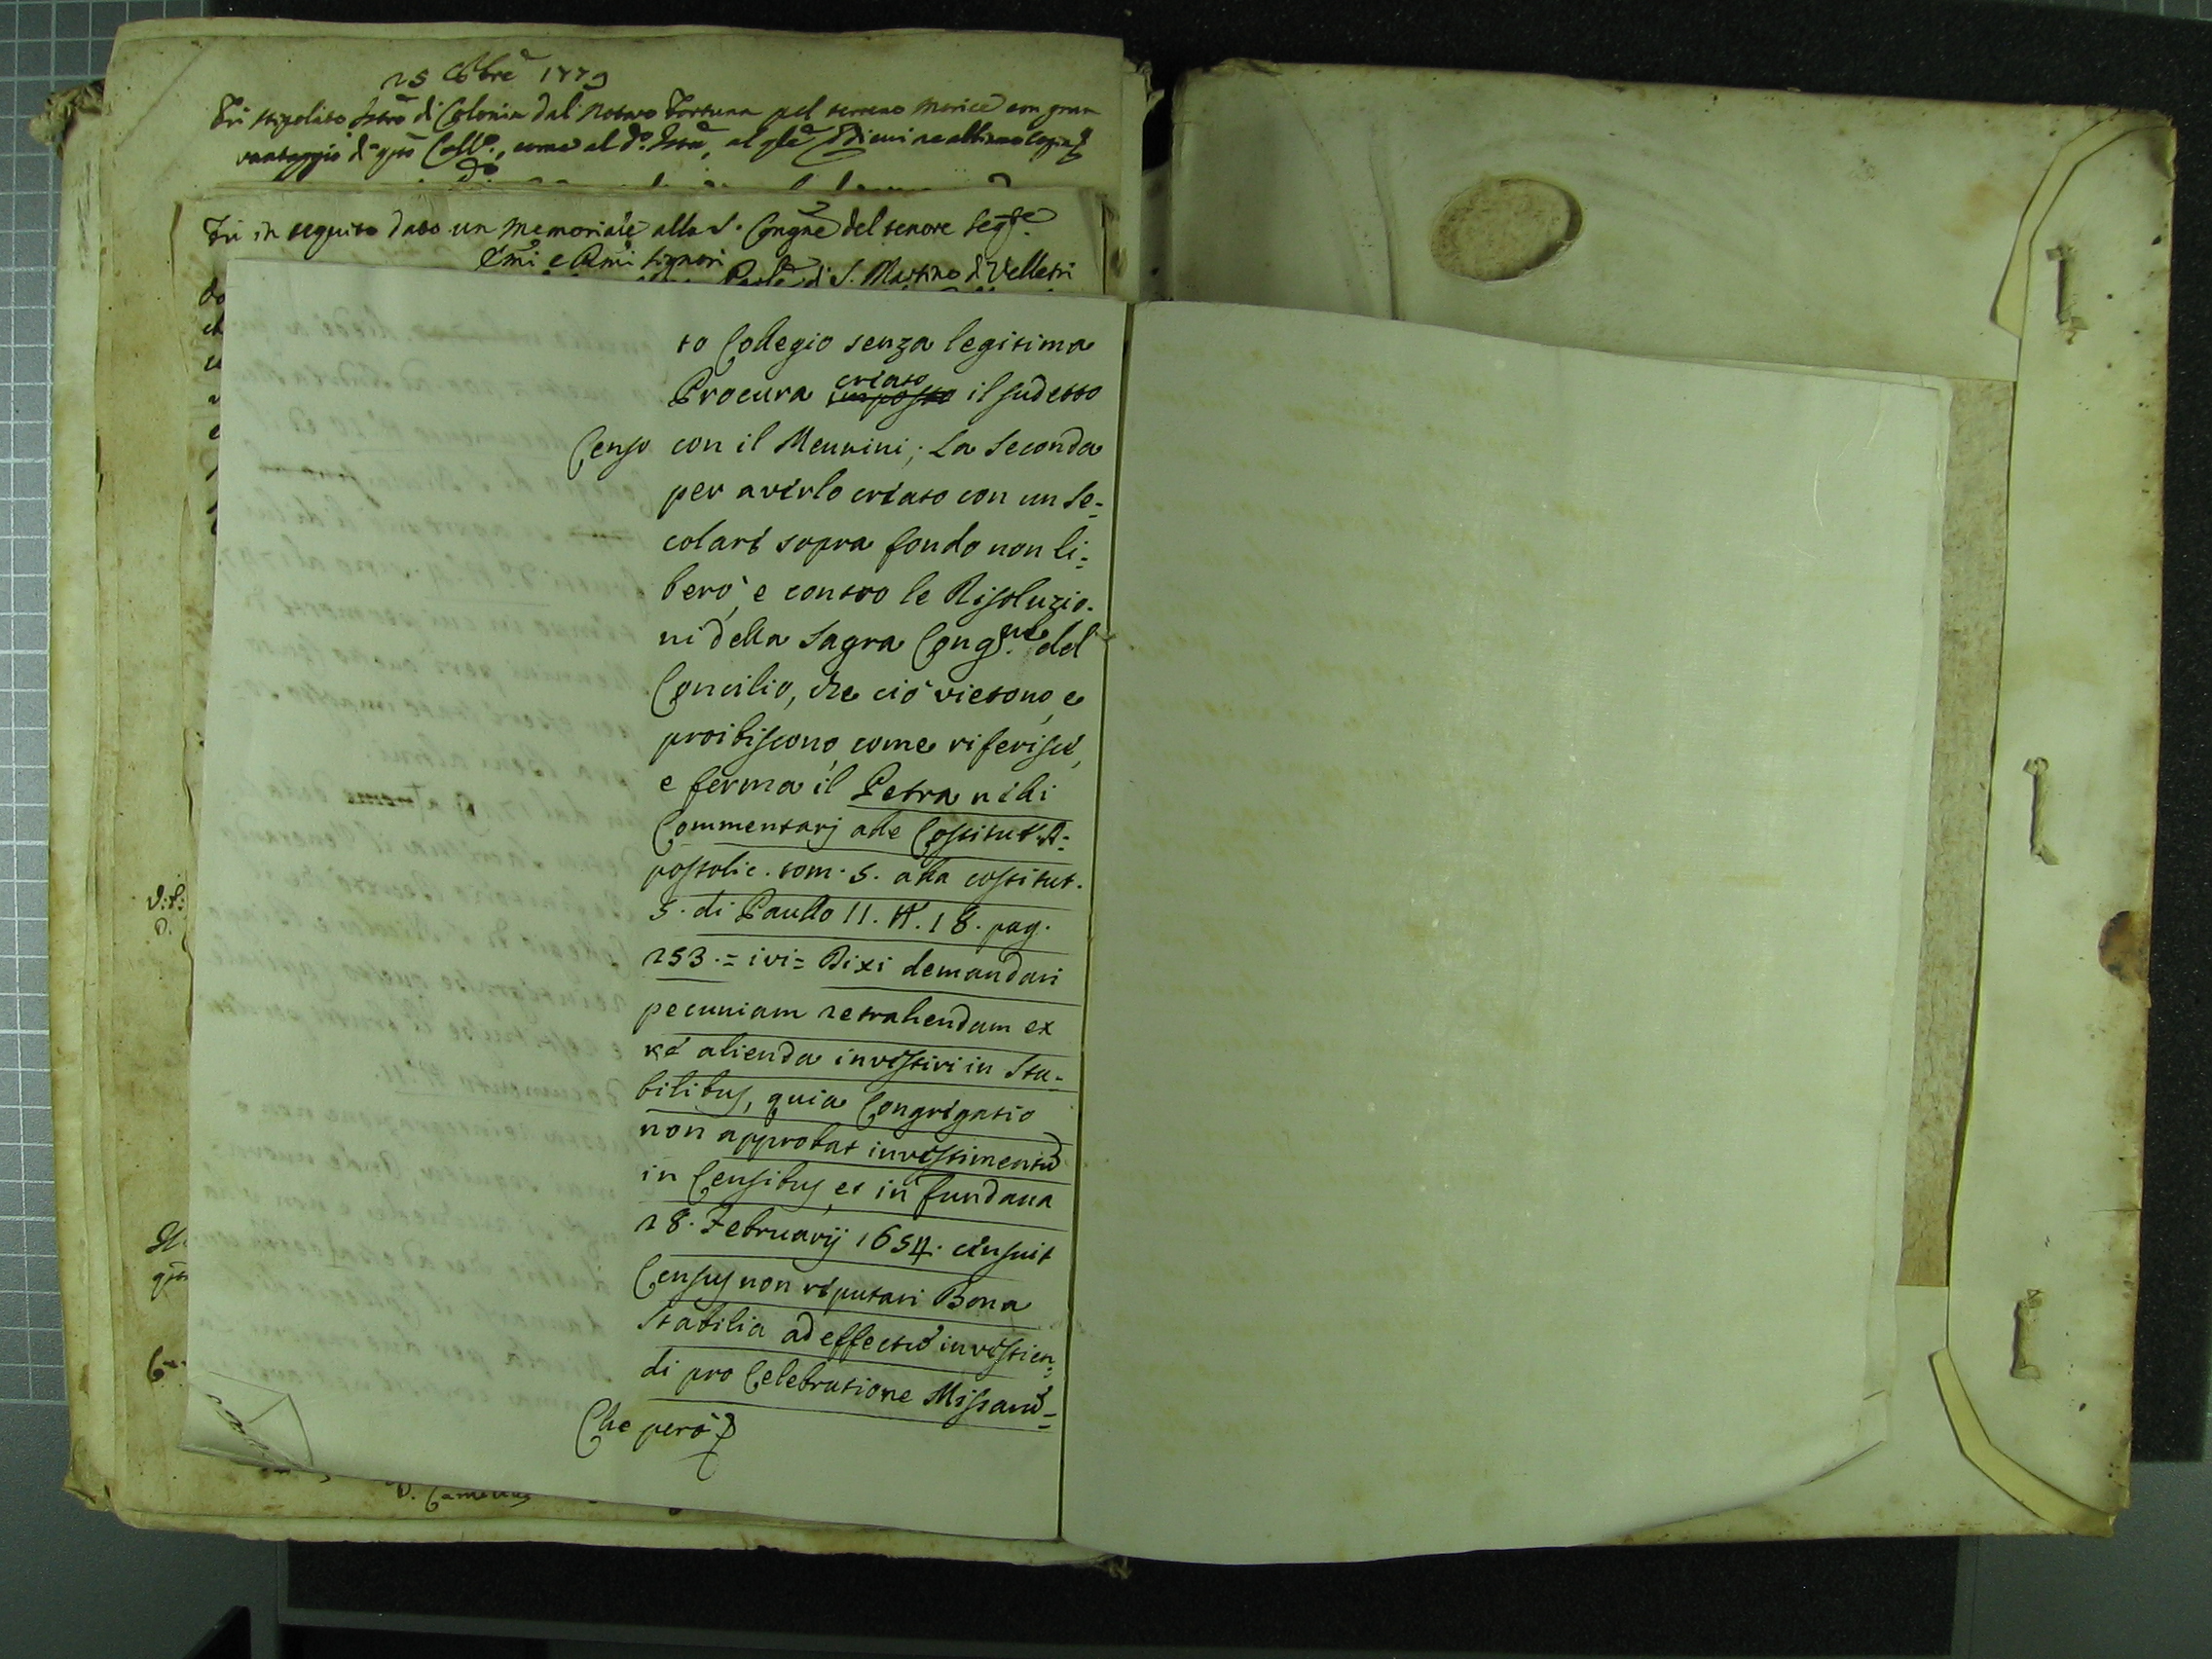 25 Xbre 1779
Fu stipolato Istro di Colonia dal Notaro Fortuna pel terreno Morice con gran
vantaggio di qto Collo., come al do. Istro, al qle
Fu in seguito dato un Memoriale alla S. Congne del tenore segte.
Emi e Rmi Signori
di S. Martino di Velletri
to Collegio senza legitima
Procura creato imposto il sudetto
Censo con il Mennini; La Seconda
per averlo creato con un Se=
colare sopra fondo non li=
bero, e contro le Risoluzio=
ni della Sagra Congne. del
Concilio, che ciò vietono, e
proibiscono, come riferisce,
e ferma il Petra nelli
Commentarj alle Costitut. A=
postolic. tom. 5. alla costitut.
5. di Paullo II. N. 18. pag.
253. = ivi = Dixi demandari
pecuniam retrahendam ex
re alienda investiri in Sta=
bilibus, quia Congregatio
non approbat investimentu
in Censibus, et in fundana
28. Februarij 1654. censuit
Census non reputari Bona
Stabilia ad effectu investien=
di pro Celebratione Missaru=
Che però
D. Camillus